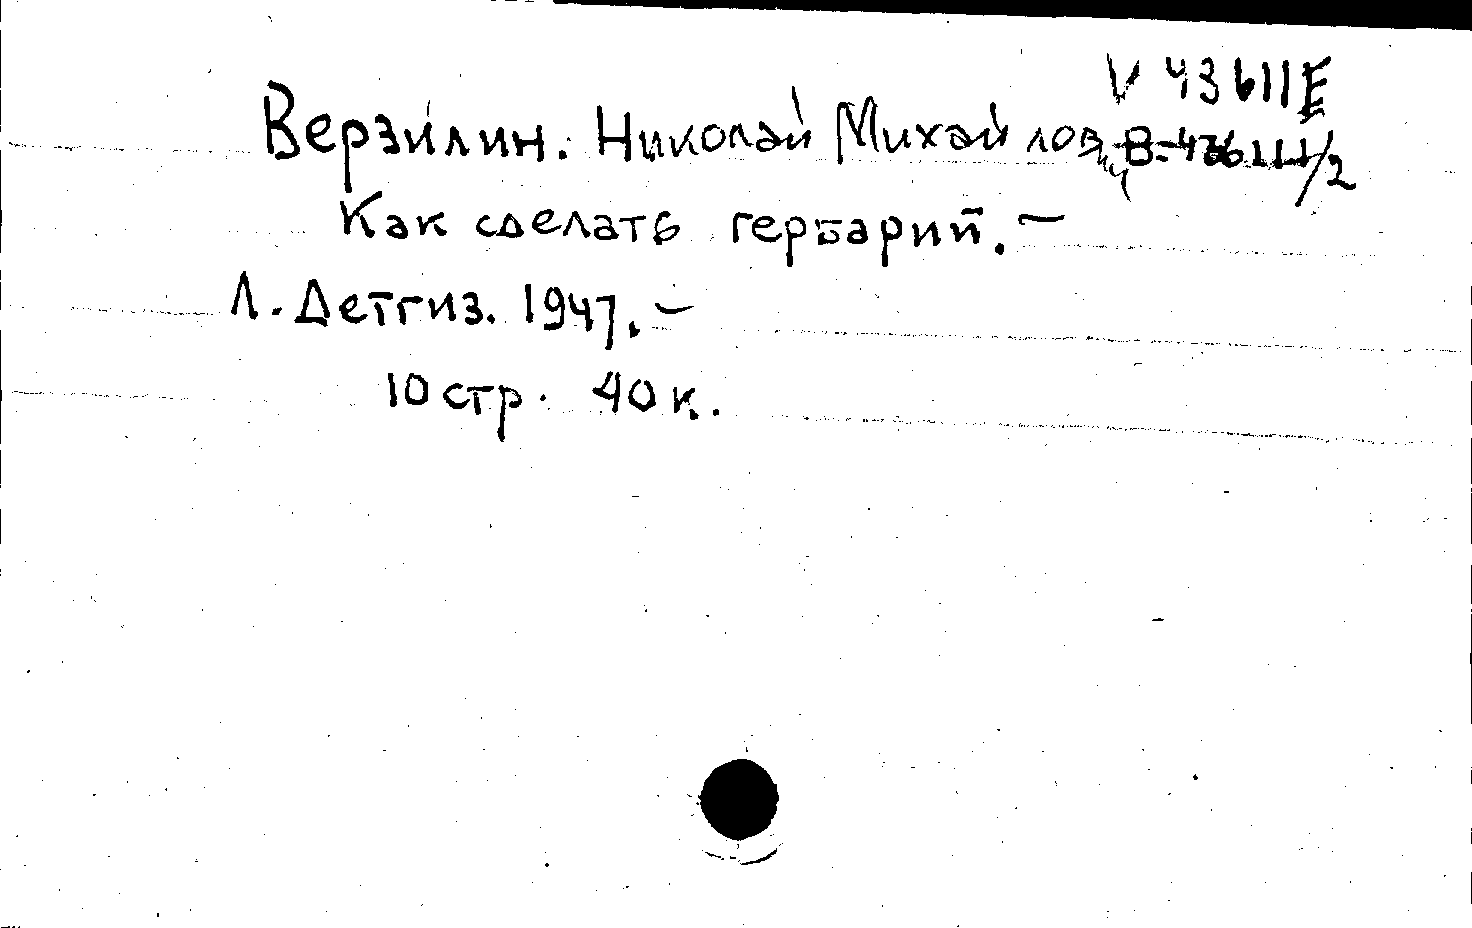 V 43611E
Верзилин. Николай Михайлович
Как сделать гербарий. —
Л. Детгиз. 1947. —
10 стр. 40 к.